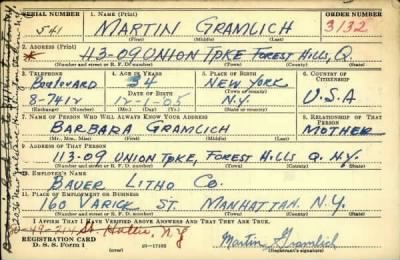 SERIAL NUMBER 1. NAME (Print) ORDER NUMBER
541 MARTIN GRAMLICH 3132
(First) (Middle) (Last)
2. ADDRESS (Print)
* 113-09 UNION TPKE FOREST HILLS, Q.
(Number and street or R. F. D. number) (Town) (County) (State)
3. TELEPHONE 4. AGE IN YEARS 5. PLACE OF BIRTH 6. COUNTRY OF CITIZENSHIP
BOULEVARD 34 NEW YORK
DATE OF BIRTH (Town or county)
8-7412 05 N.Y. U.S.A
(Exchange) (Number) (Mo.) (Day) (Yr.) (State or country)
7. NAME OF PERSON WHO WILL ALWAYS KNOW YOUR ADDRESS 8. RELATIONSHIP OF THAT PERSON
BARBARA GRAMLICH MOTHER
(Mr., Mrs., Miss) (First) (Middle) (Last)
9. ADDRESS OF THAT PERSON
113-09 UNION TPKE, FOREST HILLS Q. N.Y.
(Number and street or R. F. D. number) (Town) (County) (State)
10. EMPLOYER'S NAME
BAUER LITHO CO.
11. PLACE OF EMPLOYMENT OR BUSINESS
160 VARICK ST. MANHATTAN. N.Y.
(Number and street or R. F. D. number) (Town) (County) (State)
I AFFIRM THAT I HAVE VERIFIED ABOVE ANSWERS AND THAT THEY ARE TRUE.
REGISTRATION CARD
D. S. S. Form 1 (over) 16-17105
Martin Gramlich
(Registrant's signature)